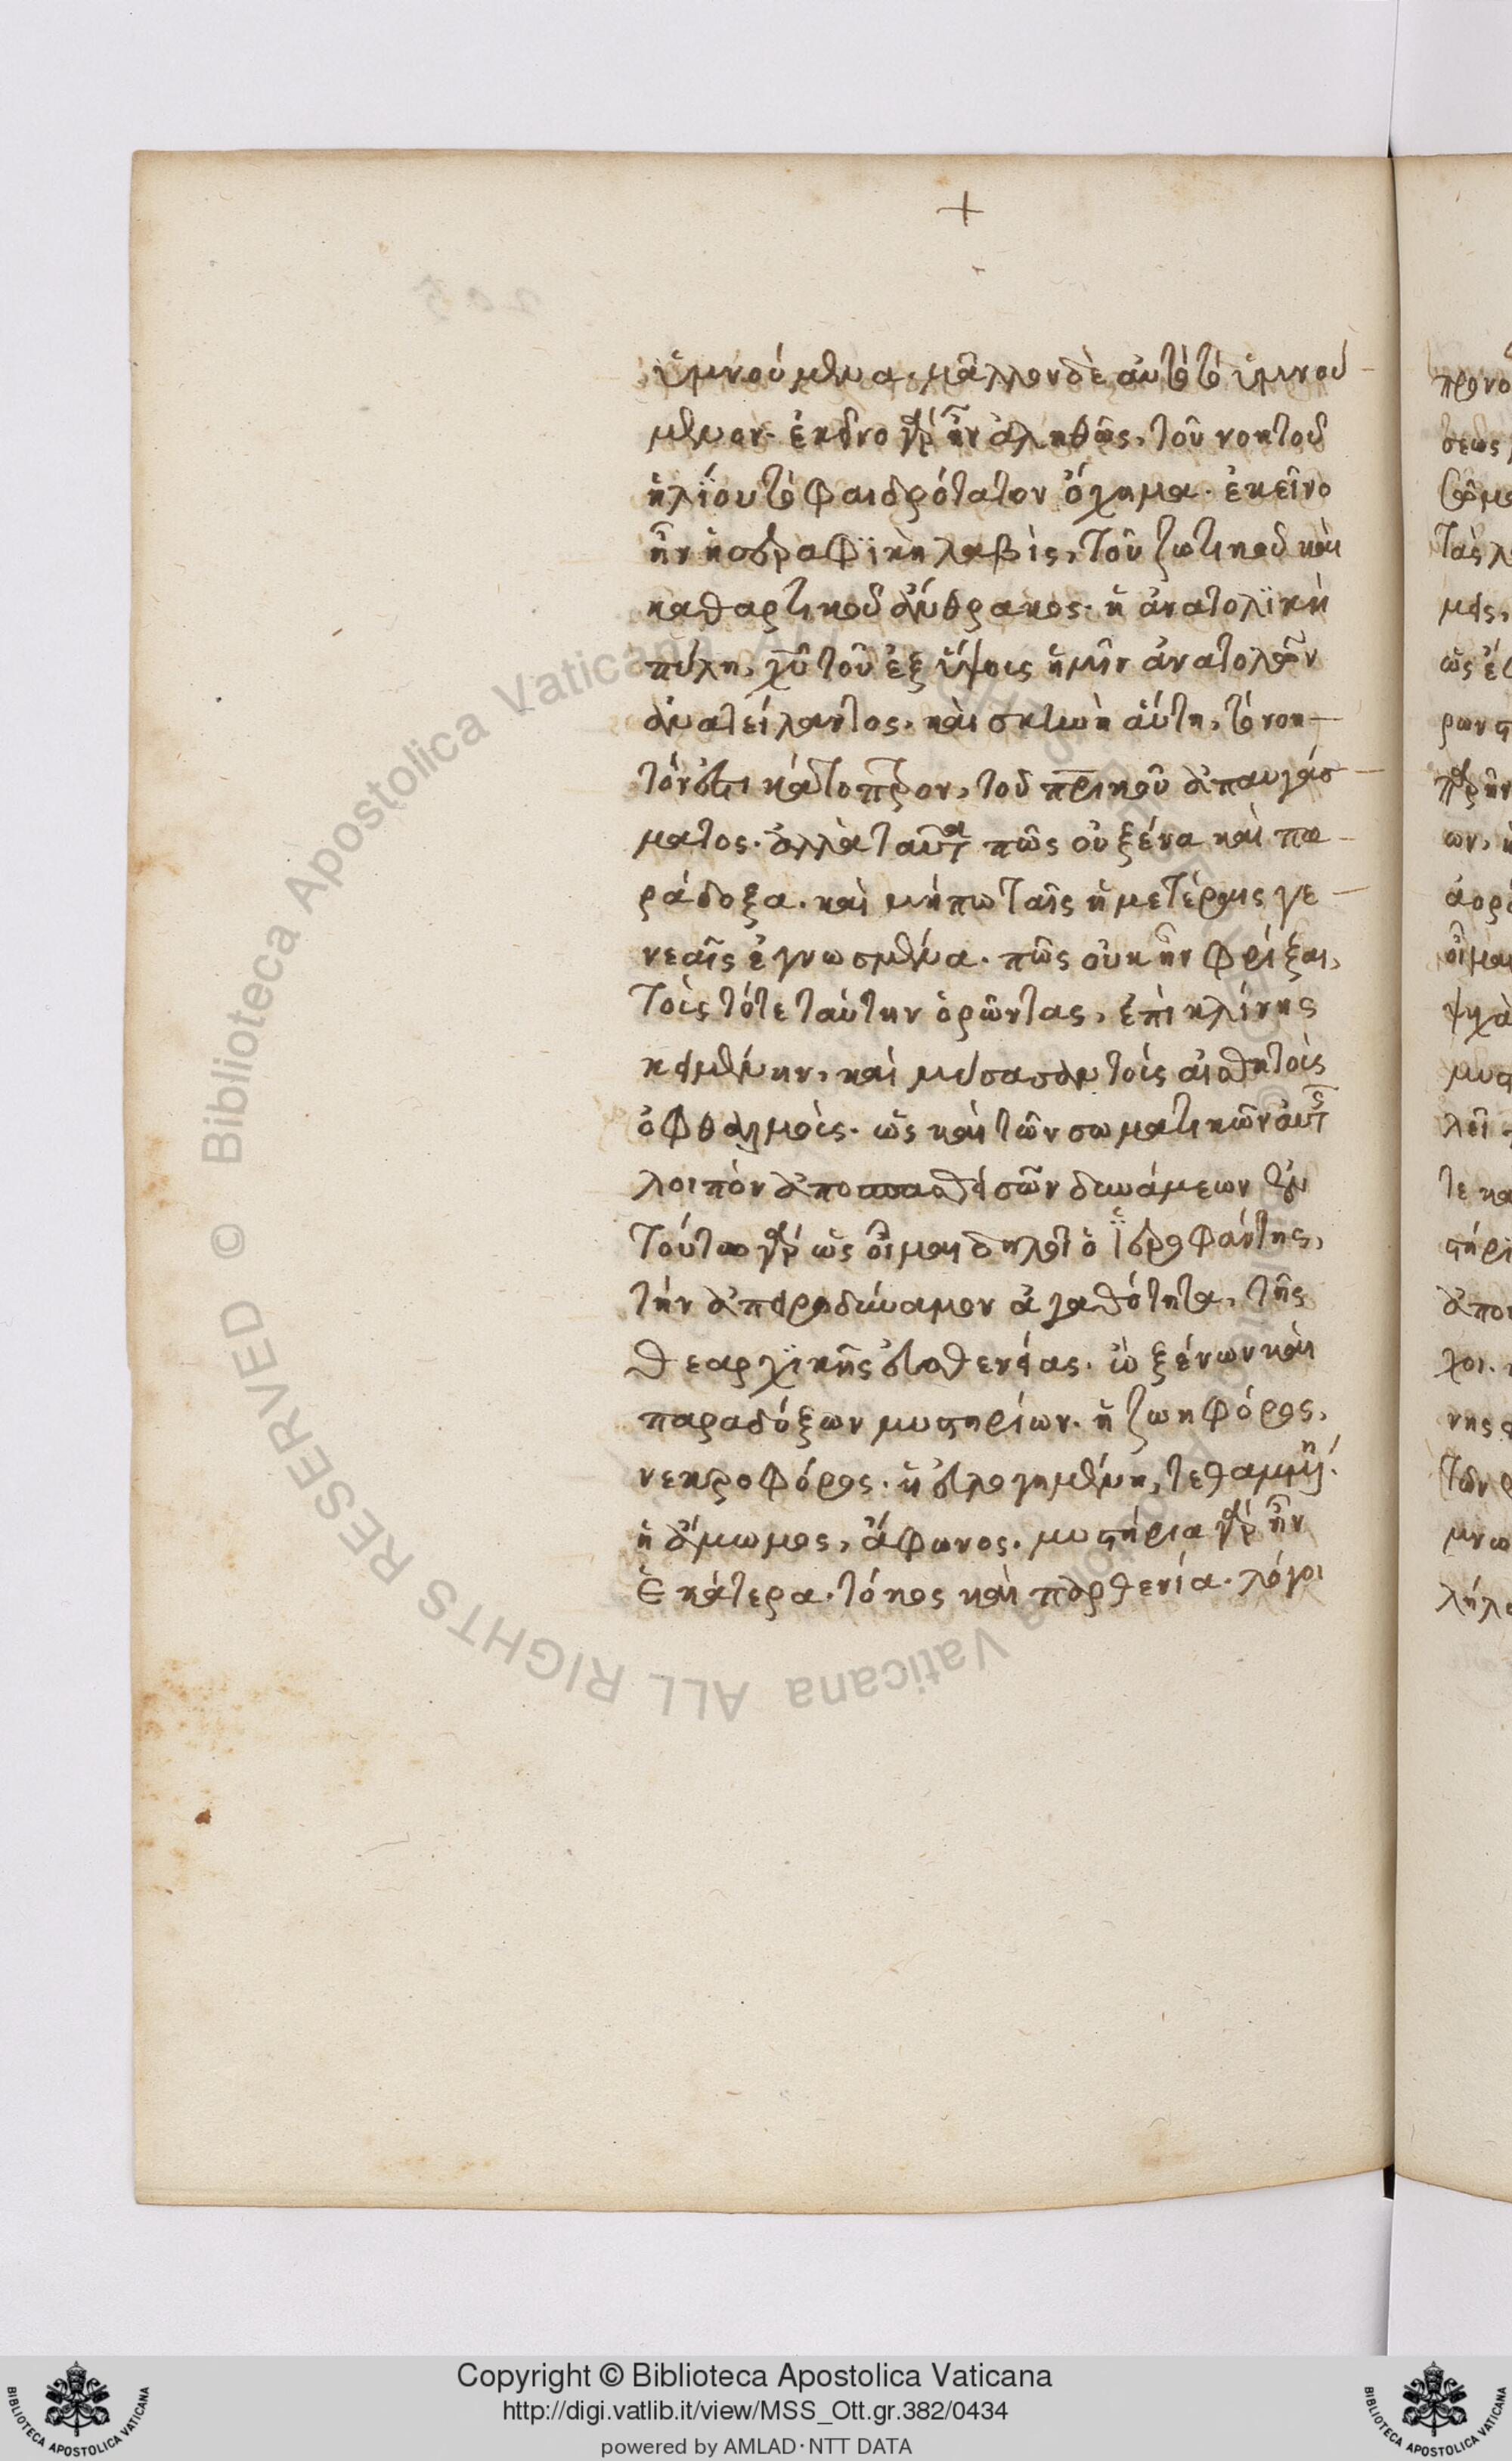 +
ὑμνούμενα. μᾶλλον δὲ αὐτὸ τὸ ὑμνού
μενον. ἐκεῖνο γὰρ ἦν ἀληθῶς, τοῦ νοητοῦ
ἡλίου τὸ φαιδρότατον ὄχημα. ἐκεῖνο
ἦν ἡ σεραφϊκὴ λαβὶς, τοῦ ζωτικοῦ καὶ
καθαρτικοῦ ἄνθρακος. ἡ ἀνατολϊκὴ
πύλη, χυ τοῦ ἐξ ὕψους ἡμῖν ἀνατολῶν
ἀνατείλαντος. καὶ σκηνὴ αὕτη, τὸ νοη
τόν ἐστι κάτοπτρον, τοῦ πρικοῦ ἀπαυγάσ
ματος. ἀλλὰ ταῦτα πῶς οὐ ξένα καὶ πα
ράδοξα. καὶ μήπω ταῖς ἡμετέραις γε
νεαῖς ἐγνωσμένα. πῶς οὐκ ἦν φρίξαι,
τοὺς τότε ταύτην ὁρῶντας, ἐπὶ κλίνης
κειμένην, καὶ μύσασαν τοῖς αἰσθητοῖς
ὀφθαλμοῖς. ὡς καὶ τῶν σωματικῶν αὐτῆς
λοιπὸν δυνάμεων ἐν
τούτω γὰρ ὡς οἶμαι δηλοῖ ὁ ἱεροφάντης,
τὴν ἀπειροδύναμον ἀγαθότητα, τῆς
θεαρχϊκῆς ἀσθενείας. ὢ ξένων καὶ
παραδόξων μυστηρίων. ἡ ζωηφόρος,
νεκροφόρος. ἡ εὐλογημένη, τεθαμμένη.
ἡ ἄμωμος, ἄφωνος. μυστήρια γὰρ ἦν
ἑκάτερα. τόκος καὶ παρθενία. λόγοι
Copyright © Biblioteca Apostolica Vaticana
http://digi.vatlib.it/view/MSS_Ott.gr.382/0434
powered by AMLAD·NTT DATA